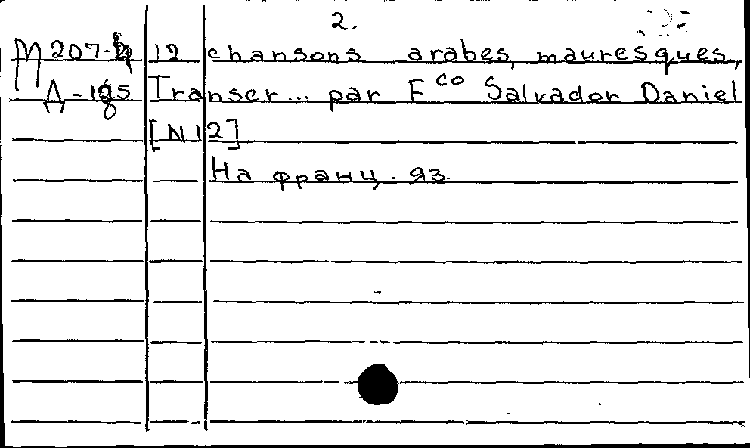 2.
М 207-4 12 chansons arabes, mauresques,
Д-185 Transcr... par Fco Salvador Daniel
[N12]
На франц. яз.